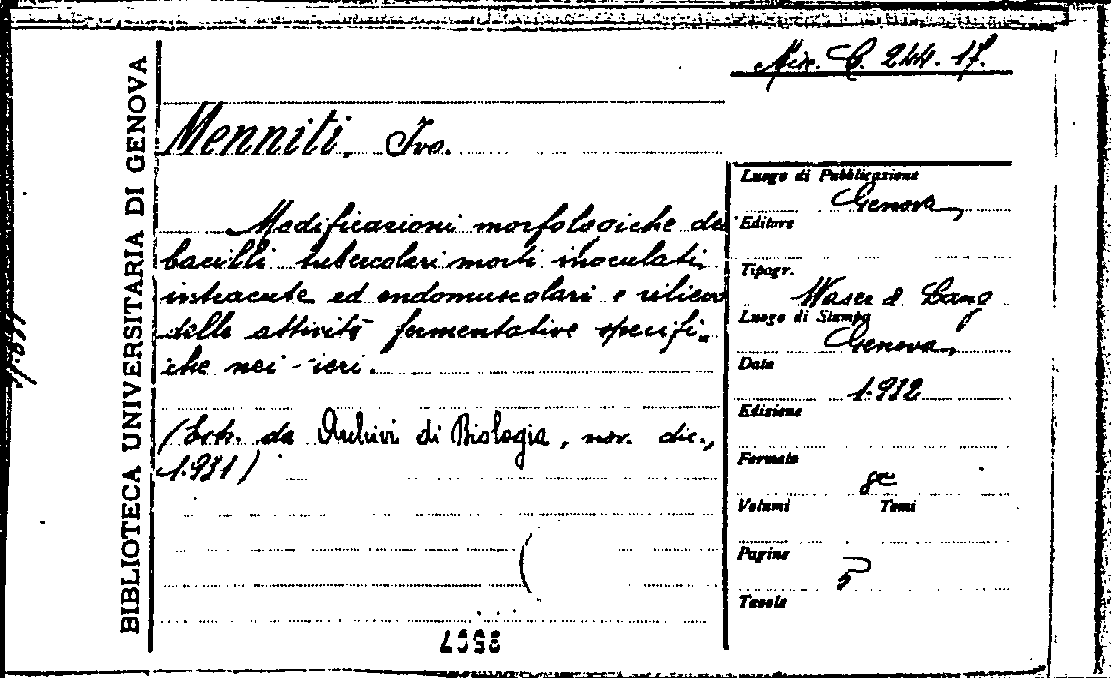 Mix. C. 244. 17.
BIBLIOTECA UNIVERSITARIA DI GENOVA
Menniti, Ivo.
Modificazioni morfologiche dei
bacilli tubercolari morti inoculati
intracute ed endomuscolari e rilievo
delle attività fermentative specifi-
che nei sieri.
(Estr. da Archivi di Biologia, nov. dic.,
1931)
Luogo di Pubblicazione
Genova,
Editore
Tipogr.
Waser & Lang
Luogo di Stampa
Genova,
Data
1932
Edizione
Formato
8°
Volumi Tomi
Pagine
5
Tavole